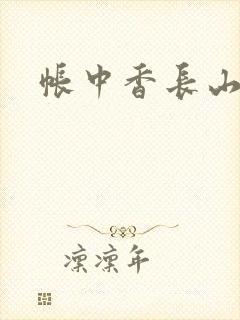 帐中香长山
凛凛年